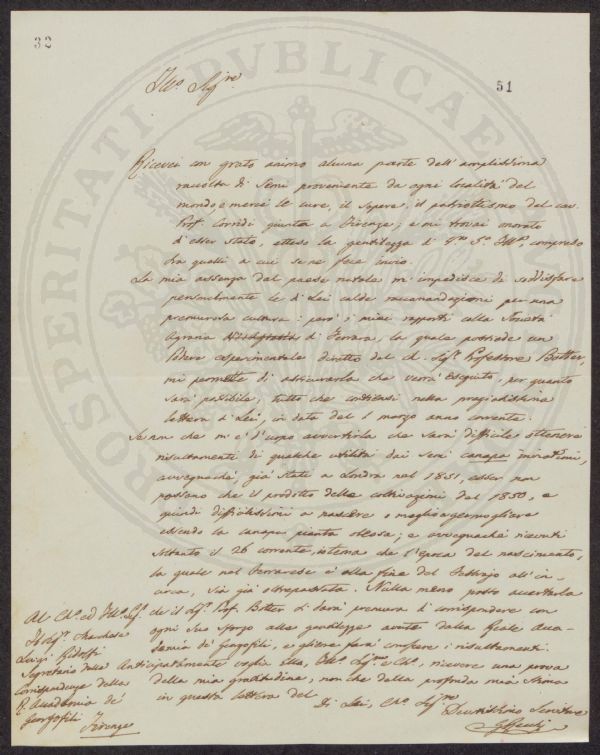 32
51
Illo. Sigre.
Ricevei con grato animo alcuna parte dell'amplissima
raccolta di semi proveniente da ogni località del
mondo, e mercè le cure, il sapere, il patriottismo del cav.
Prof. Corridi giunta a Firenze; e mi trovai onorato
d'esser stato, attesa la gentilezza di compreso
fra quelli a cui se ne fece invio.
La mia assenza dal paese natale m'impedisce di soddisfare
personalmente le di Lei calde raccomandazioni per una
premurosa cultura: però i miei rapporti colla Società
Agraria di Ferrara, la quale possiede un
Podere esperimentale diretto dal ch. Sigr. Professore Botter,
mi permette di assicurarla che verrà eseguito, per quanto
sarà possibile, tutto che contiensi nella pregiatissima
lettera di Lei, in data del 1 marzo anno corrente.
Se non che m'è d'uopo avvertirla che sarà difficile ottenere
risultamenti di qualche utilità dai semi canapa
avvegnachè, già stati a Londra nel 1851, esser non
possano che il prodotto delle coltivazioni del 1850, e
quindi difficilissimi a nascere o meglio a germogliare
essendo la canapa pianta oleosa; e avvegnachè ricevuti
soltanto il 26 corrente, che l'epoca del nascimento,
la quale nel Ferrarese è alla fine del Febbrajo all'in-
circa, sia già oltrepassata. Nulla meno posso accertarla
che il Sigr. Prof. Botter si darà premura di corrispondere con
ogni suo sforzo alle gentilezze avute dalla Reale Acca-
demia de' Georgofili, e gliene farà conoscere i risultamenti.
Anticipatamente voglia Ella, ricevere una prova
della mia gratitudine, non che della profonda mia stima
in questa lettera del
Di Lei, Cho. Sigre.
Devotissimo Servitore
Al Cho. ed Illo. Sigr.
Il Sigr. Marchese
Luigi Ridolfi
Segretario della
Corrispondenza della
R. Accademia de'
Georgofili
Firenze
PROSPERITATI PUBLICAE